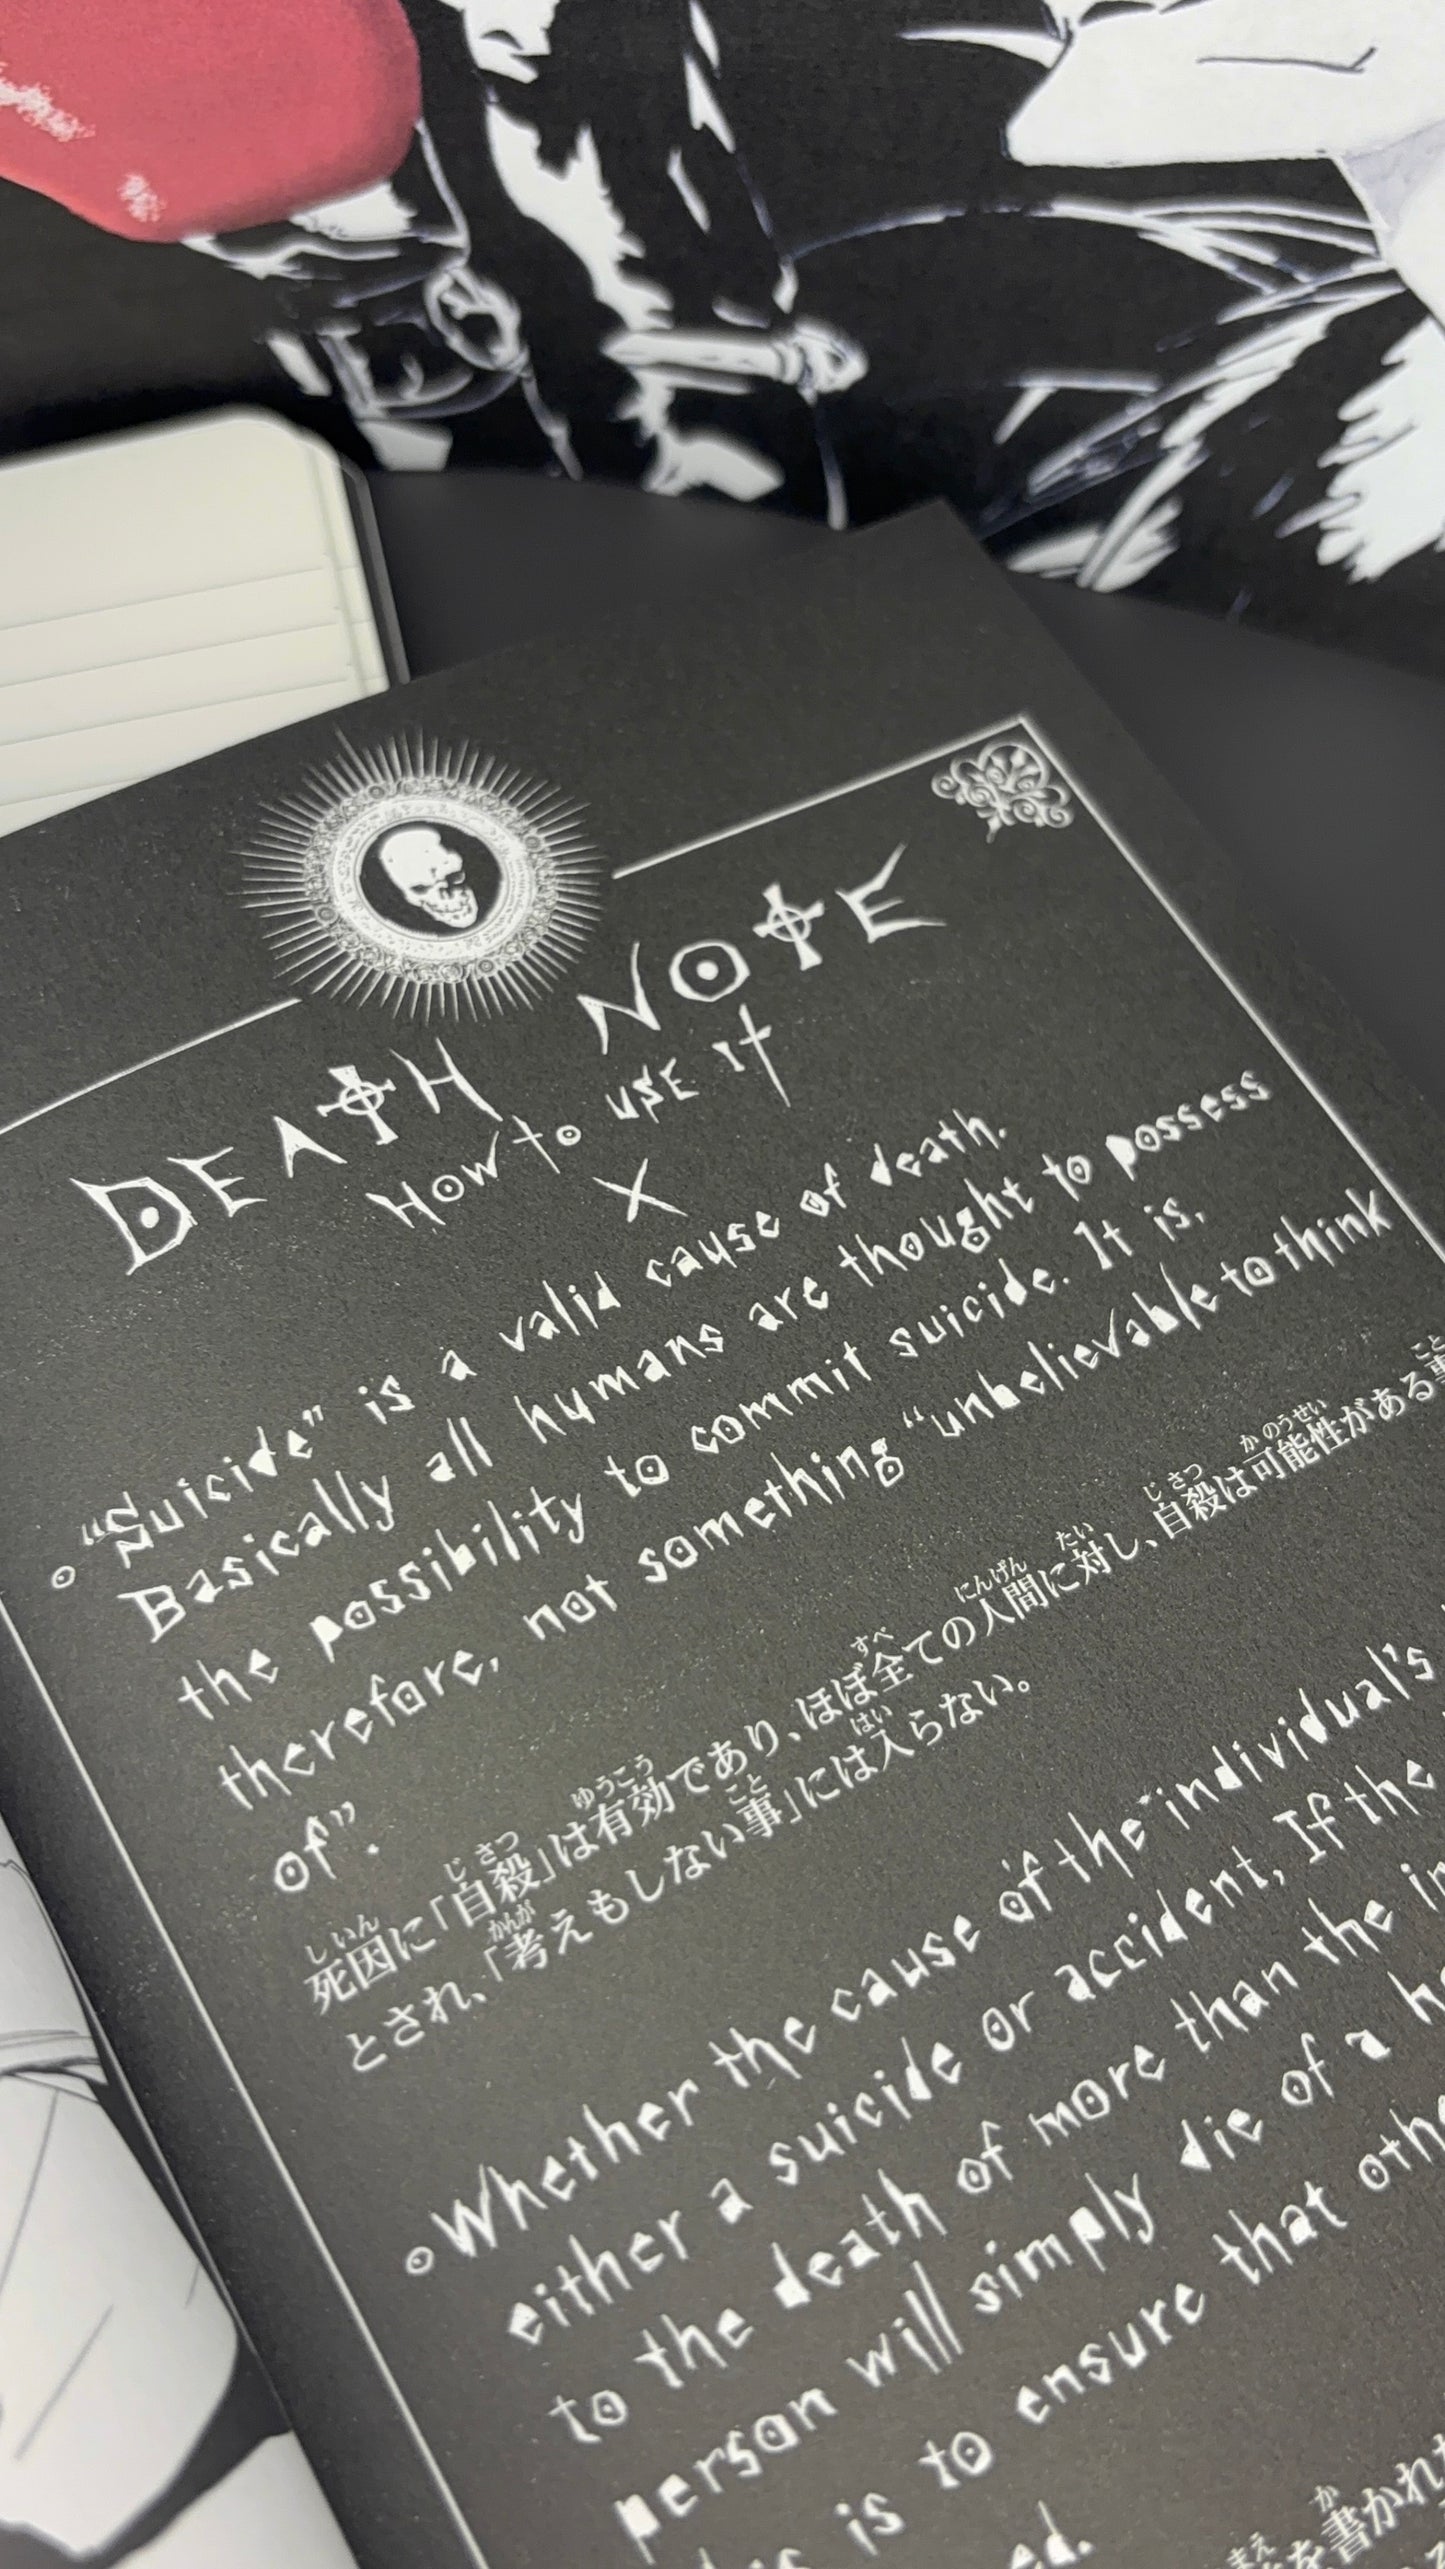 DEATH NOTE
HOW TO USE IT
X
“Suicide” is a valid cause of death.
Basically all humans are thought to possess
the possibility to commit suicide. It is,
therefore, not something “unbelievable to think
of”.
死因に「自殺」は有効であり、ほぼ全ての人間に対し、自殺は可能性がある事
とされ、「考えもしない事」には入らない。
Whether the cause of the individual's
either a suicide or accident, If the
to the death of more than the in
person will simply die of a h
is to ensure that oth
ed.
を書かれ